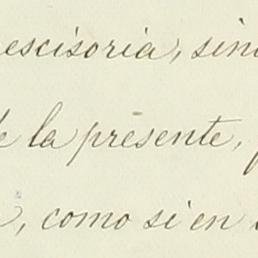 escisoria, sin
de la presente,
, como si en